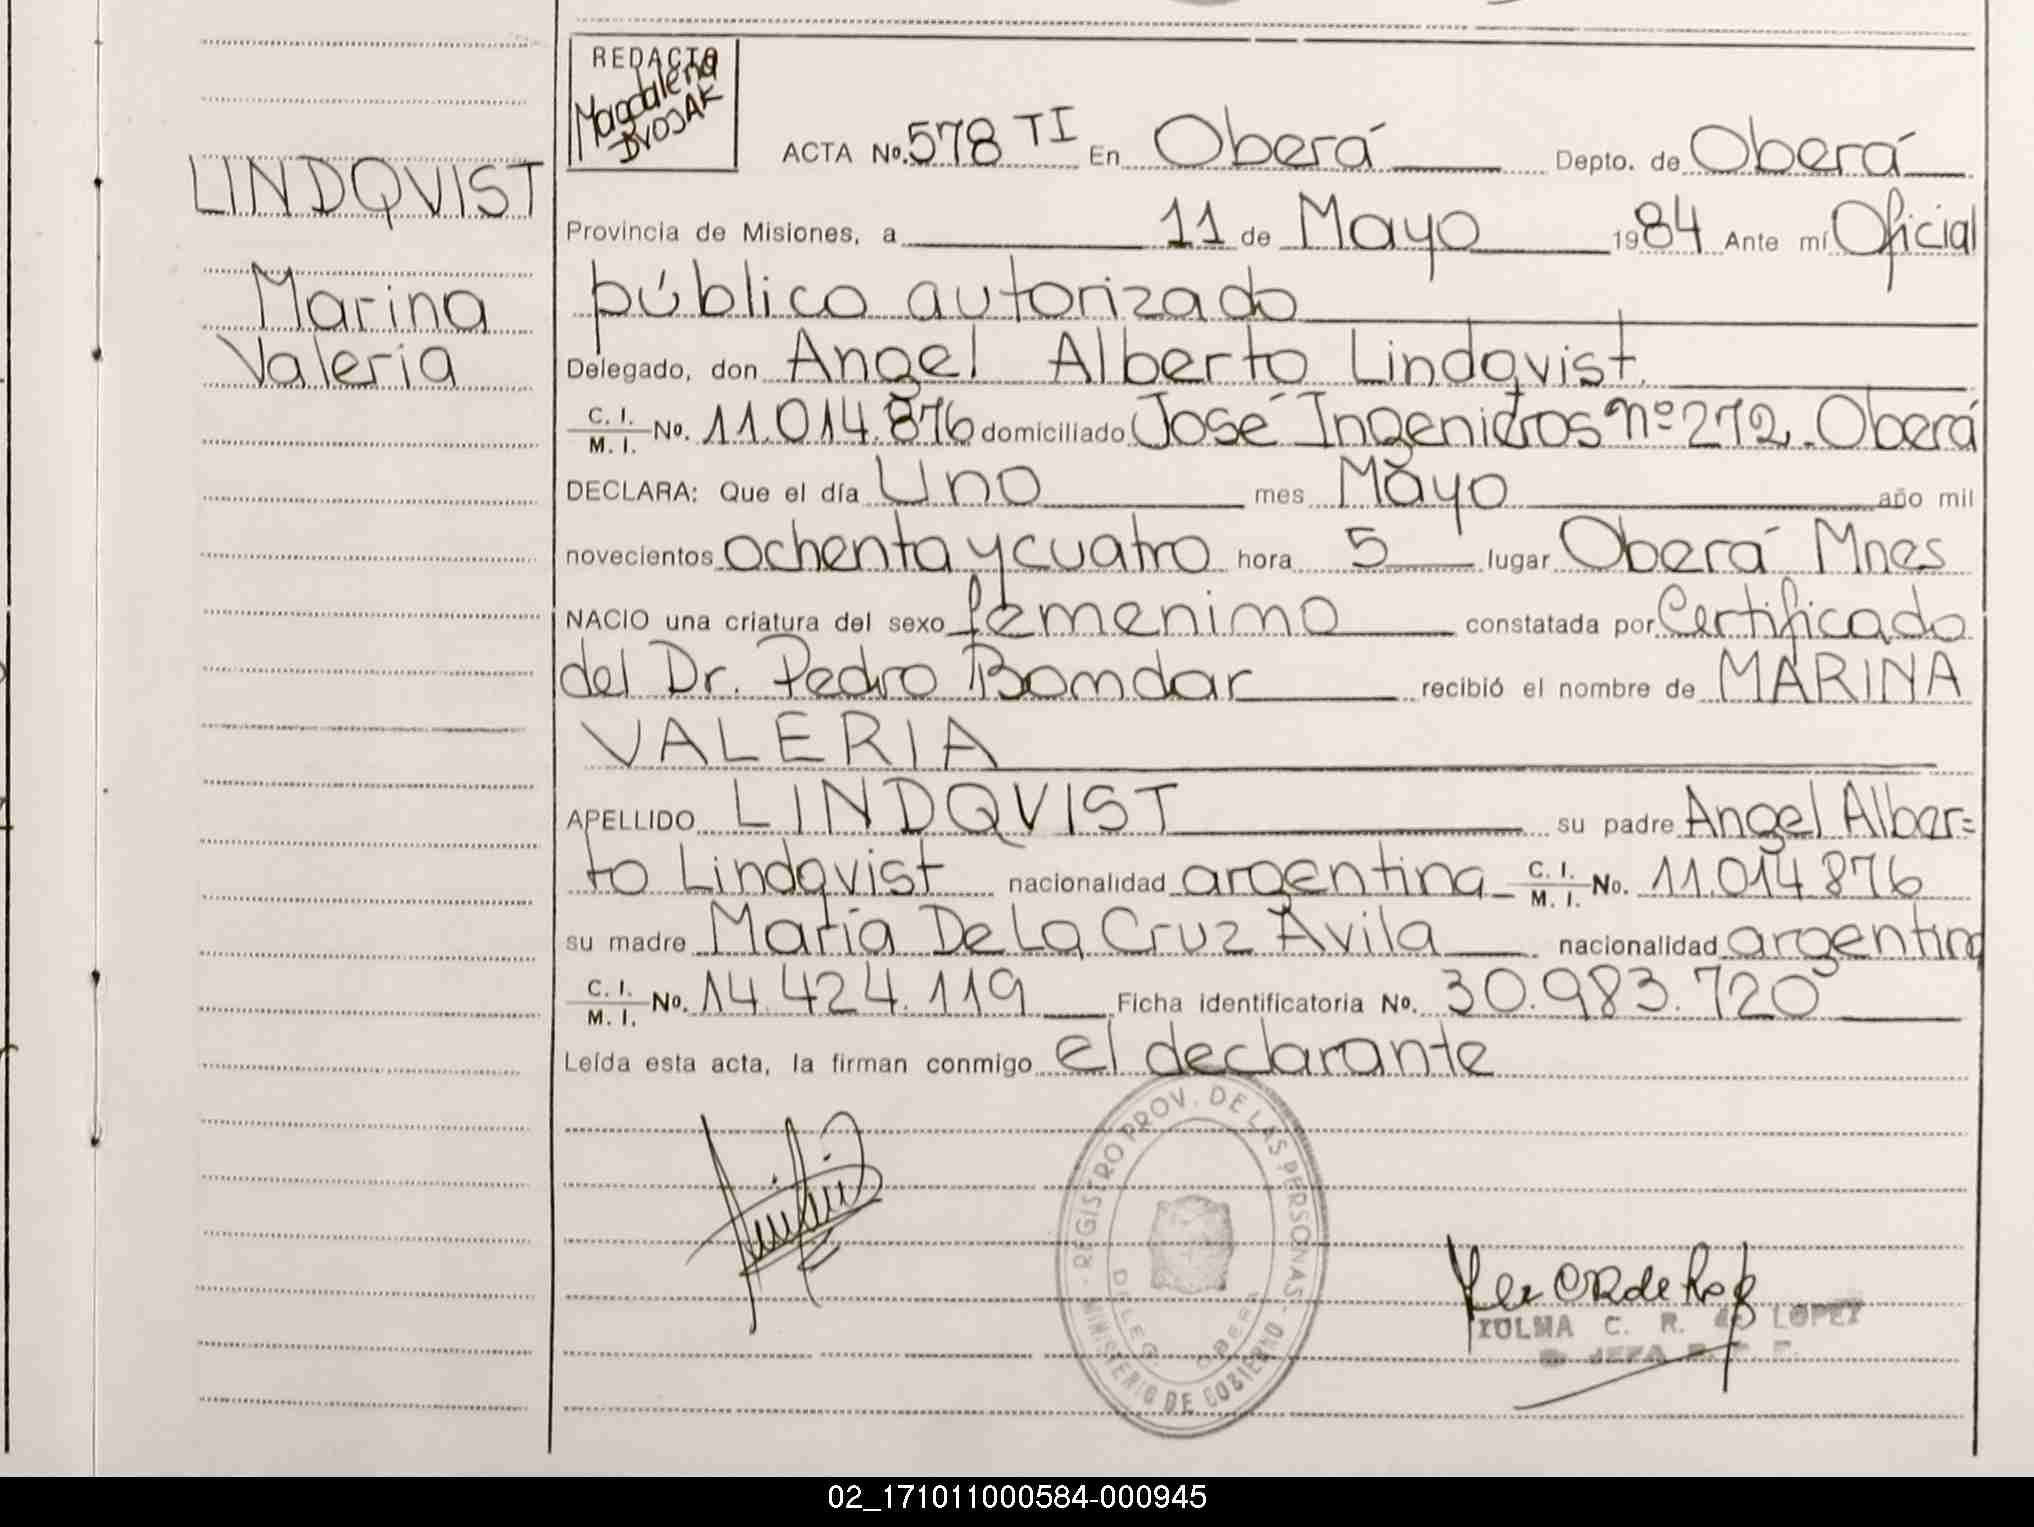 REDACTO
Magdalena
DVOJAK
ACTA No. 578 TI En Oberá Depto. de Oberá
LINDQVIST
Provincia de Misiones, a 11 de Mayo 1984 Ante mí Oficial
Marina
público autorizado
Valeria
Delegado, don Angel Alberto Lindqvist.
C. I. M. I. No. 11.014.876 domiciliado José Ingenieros nº 272. Oberá
DECLARA: Que el día Uno mes Mayo año mil
novecientos ochenta y cuatro hora 5 lugar Oberá Mnes
NACIO una criatura del sexo femenino constatada por Certificado
del Dr. Pedro Bomdar recibió el nombre de MARINA
VALERIA
APELLIDO LINDQVIST su padre Angel Alber=
to Lindqvist nacionalidad argentina C. I. M. I. No. 11.014 876
su madre María De La Cruz Avila nacionalidad argentina
C. I. M. I. No. 14.424.119 Ficha identificatoria No. 30.983.720
Leída esta acta, la firman conmigo el declarante
REGISTRO PROV. DE LAS PERSONAS - MINISTERIO DE GOBIERNO -
DELEG. OBERA
C. R. de LOPEZ
JEFA
02_171011000584-000945